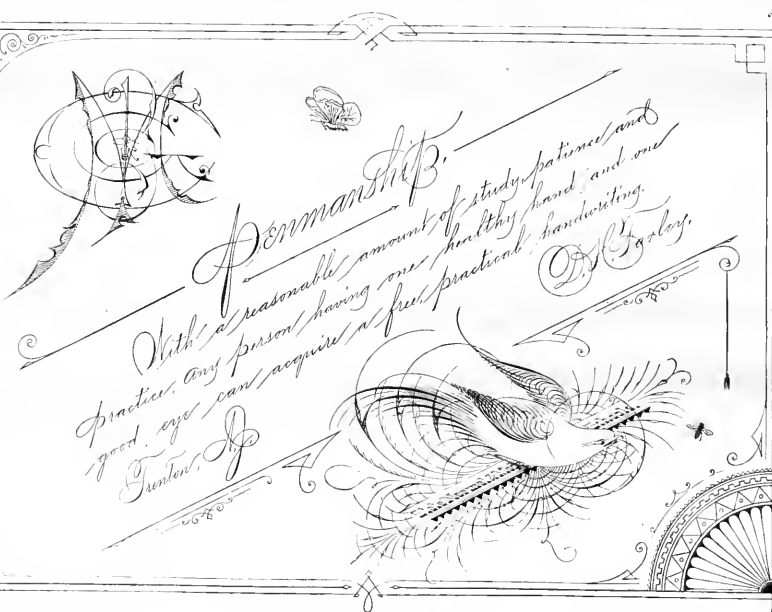 Penmanship.
With a reasonable amount of study, patience and
practice, any person having one healthy hand and one
good eye can acquire a free, practical handwriting.
D. H. Farley,
Trenton, N.J.